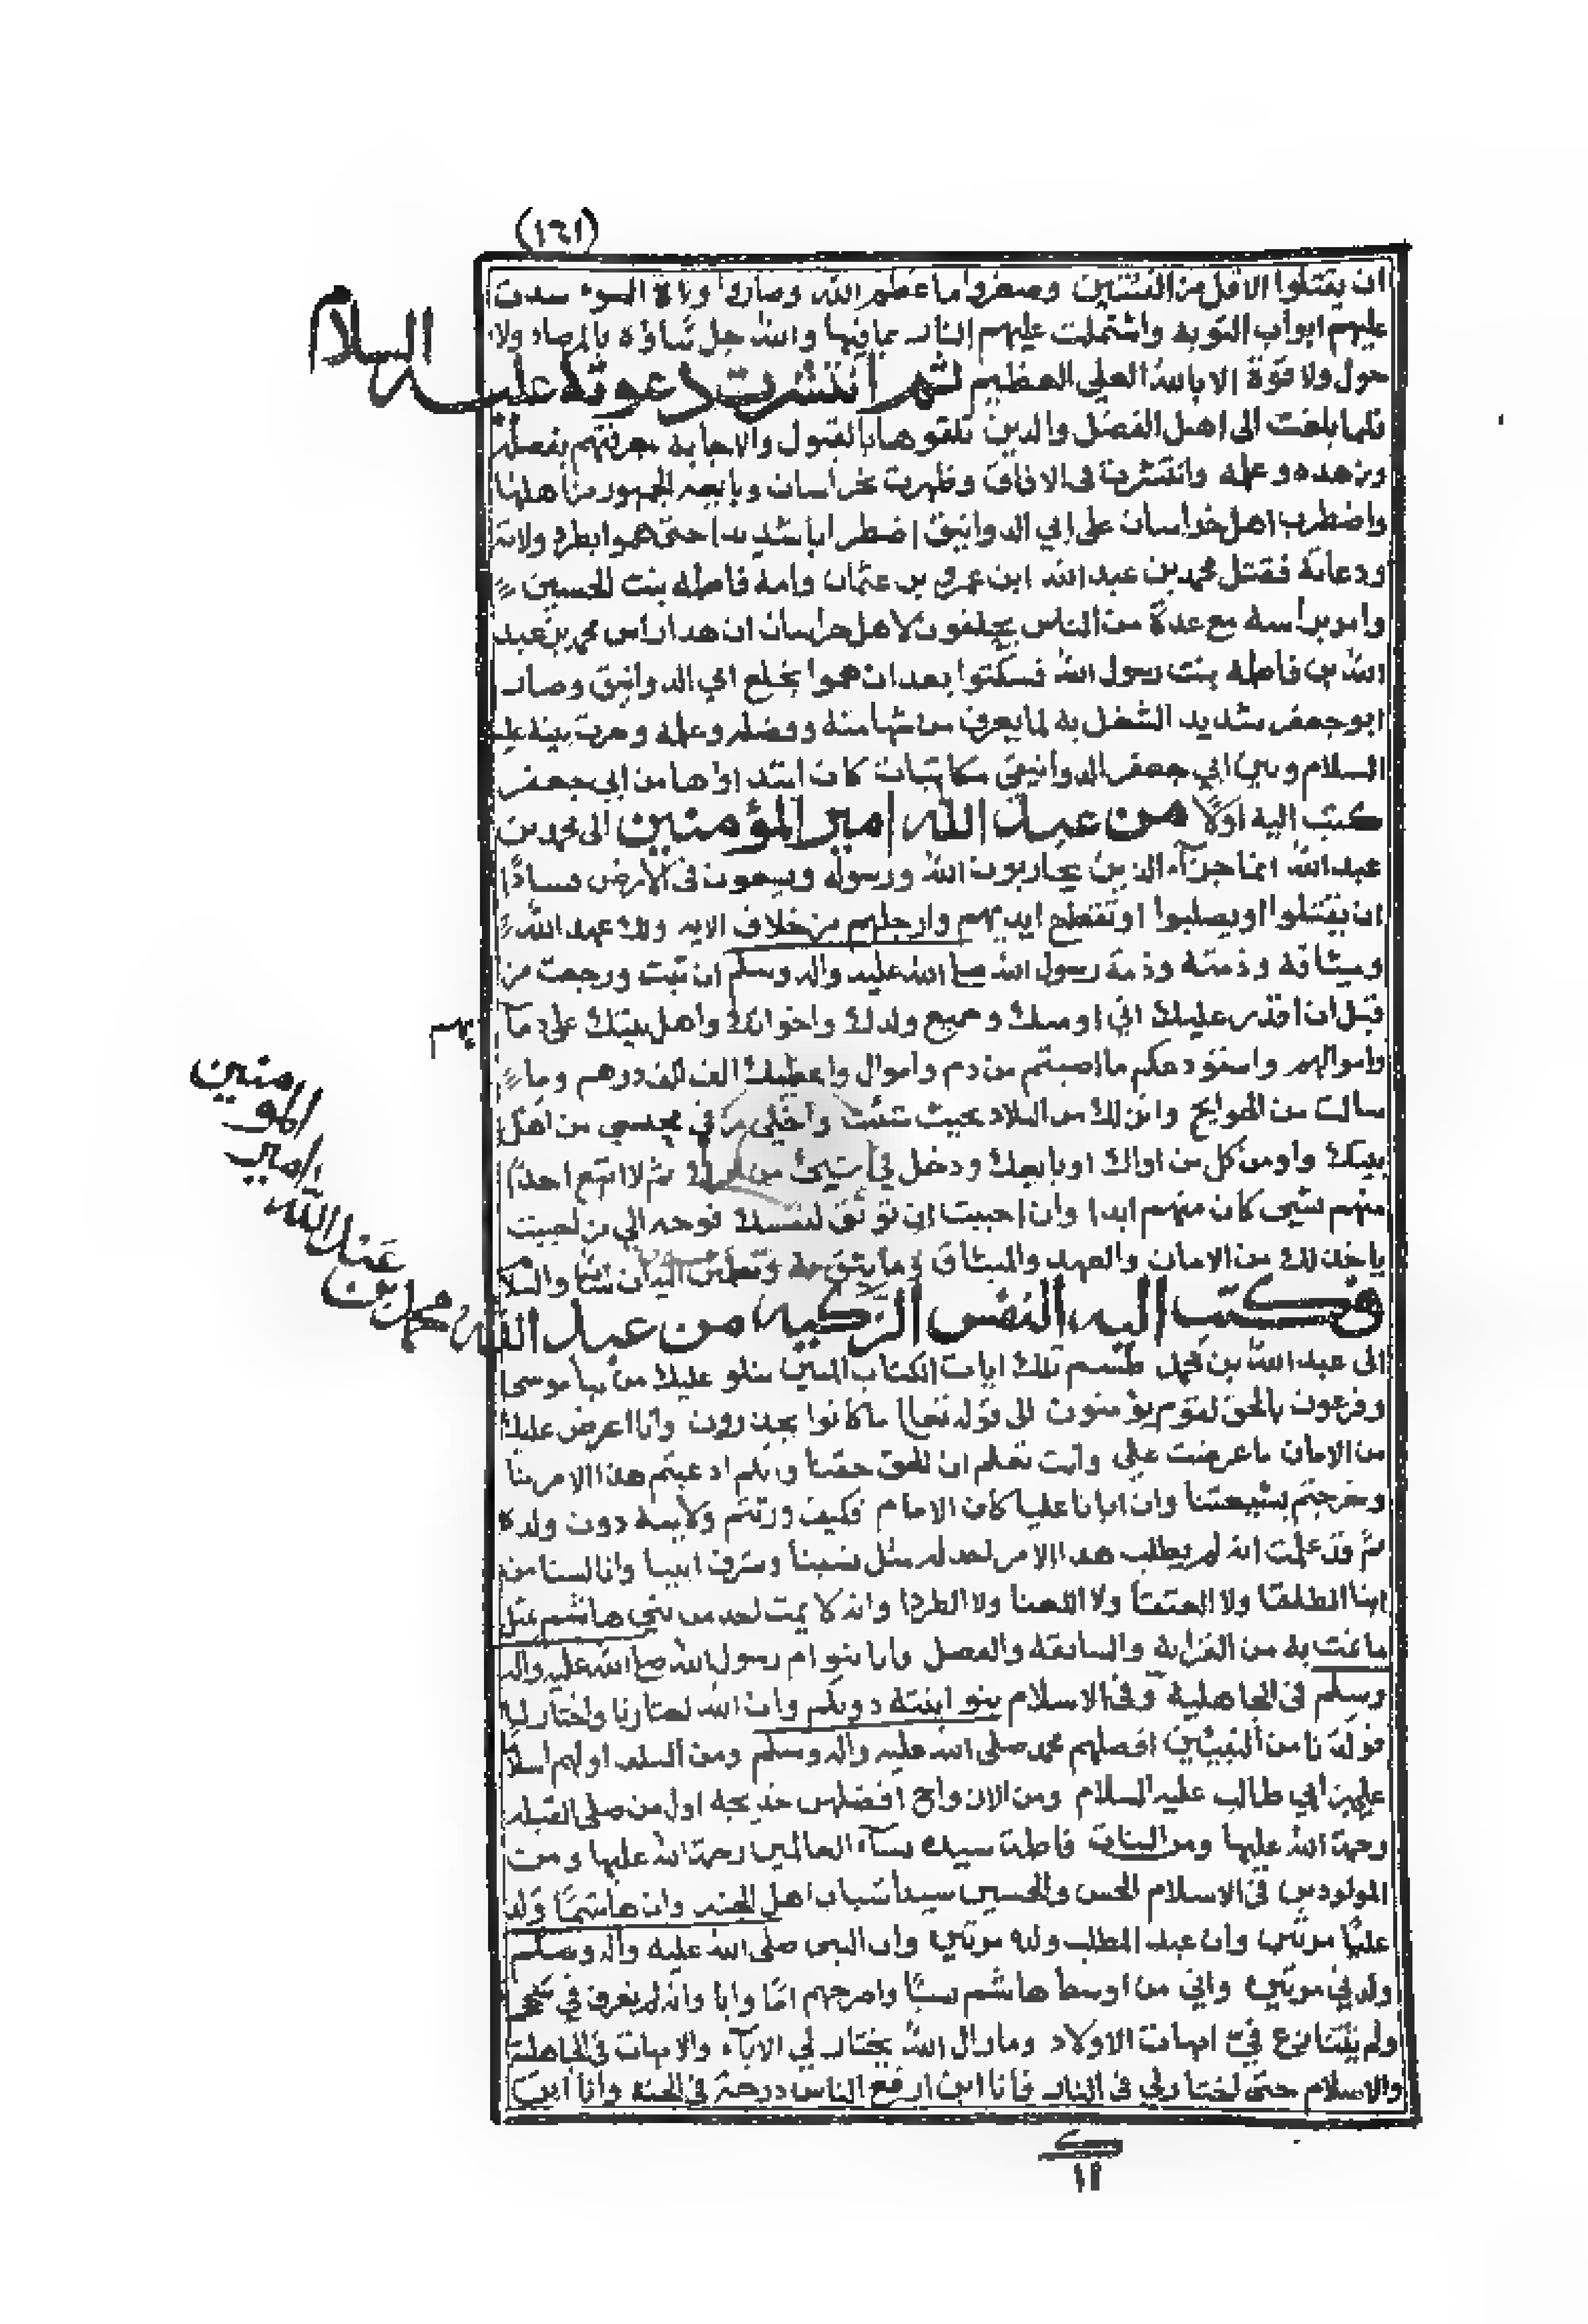 (١٦١)
ان يقتلوا الاقل من الفئتين وصغروا ما عظم الله وصاروا ولاة السوء سدت
عليهم ابواب التوبة واشتملت عليهم النار بما فيها والله جل ثناؤه بالمرصاد ولا
حول ولا قوة الا بالله العلي العظيم ثم انتشرت دعوته عليه السلام
فلما بلغت الى اهل الفضل والدين تلقوها بالقبول والاجابة لمعرفتهم بفضله
وزهده وعلمه وانتشرت في الافاق وظهرت بخراسان وبايعه الجمهور من اهلها
واضطرب اهل خراسان على ابي الدوانيق اضطرابا شديدا حتى هموا بطرد ولاته
ودعاته فقتل محمد بن عبد الله ابن عمرو بن عثمان وامه فاطمه بنت الحسين
وامر براسه مع عدة من الناس يحلفون لاهل خراسان ان هذا راس محمد بن عبد
الله بن فاطمه بنت رسول الله فسكتوا بعد ان هموا بخلع ابي الدوانيق وصار
ابو جعفر شديد الشغل به لما يعرف من شهامته وفضله وعلمه وجرت بينه عليه
السلام وبين ابي جعفر الدوانيقي مكاتبات كان ابتداؤها من ابي جعفر
كتب اليه اولا من عبد الله امير المؤمنين الى محمد بن
عبد الله انما جزآء الذين يحاربون الله ورسوله ويسعون في الارض فسادًا
ان يقتلوا او يصلبوا او تقطع ايديهم وارجلهم من خلاف الايه ولك عهد الله
وميثاقه وذمته وذمة رسول الله صلى الله عليه واله وسلم ان تبت ورجعت من
قبل ان اقدر عليك اني اومنك وجميع ولدك واخوانك واهل بيتك على دمآ
ئهم
واموالهم واسوغكم ما اصبتم من دم واموال واعطيك الف الف درهم وما
سالت من الحوايج وانزلك من البلاد حيث شئت واخلي من في محبسي من اهل
بيتك واومن كل من اواك او بايعك ودخل في شيئ من امرك ثم لا اتبع احدًا
منهم بشيئ كان منهم ابدا وان احببت ان توثق لنفسك فوجه الي من احببت
ياخذ لك من الامان والعهد والميثاق وما يثق به والسلام
فكتب اليه النفس الزكيه من عبد الله محمد بن عبد الله امير المومنين
الى عبد الله بن محمد طسم تلك ايات الكتاب المبين نتلو عليك من نبا موسى
وفرعون بالحق لقوم يؤمنون الى قوله تعالى ما كانوا يحذرون وانا اعرض عليك
من الامان ما عرضت علي وانت تعلم ان الحق حقنا وبكم ادعيتم هذا الامر بنا
وخرجتم بشيعتنا وان ابانا عليا كان الامام فكيف ورثتم ولايته دون ولده
ثم قد علمت انه لم يطلب هذا الامر احد له مثل نسبنا وشرف ابينا وانا لسنا من
ابنا الطلقا ولا العتقا ولا اللعنا ولا الطردا وانه لا يمت احد من بني هاشم بمثل
ما نمت به من القرابة والسابقة والفضل وانا بنو ام رسول الله صلى الله عليه واله
وسلم في الجاهلية وفي الاسلام بنو ابنته دونكم وان الله اختارنا واختار لنا
فولدنا من النبيئين افضلهم محمد صلى الله عليه واله وسلم ومن السلف اولهم اسلامًا
علي بن ابي طالب عليه السلام ومن الازواج افضلهن خديجه اول من صلى القبله
رحمة الله عليها ومن البنات فاطمة سيده نسآء العالمين رحمة الله عليها ومن
المولودين في الاسلام الحسن والحسين سيدا شباب اهل الجنه وان هاشمًا ولد
عليًا مرتين وان عبد المطلب ولده مرتين وان النبي صلى الله عليه واله وسلم
ولدني مرتين واني من اوسط هاشم نسبًا واصرحهم امًا وابا وانه لم تعرق في
ولم يتنازع في امهات الاولاد وما زال الله يختار لي الابآء والامهات في الجاهلية
والاسلام حتى اختار لي في النار فانا ابن ارفع الناس درجة في الجنه وانا ابن